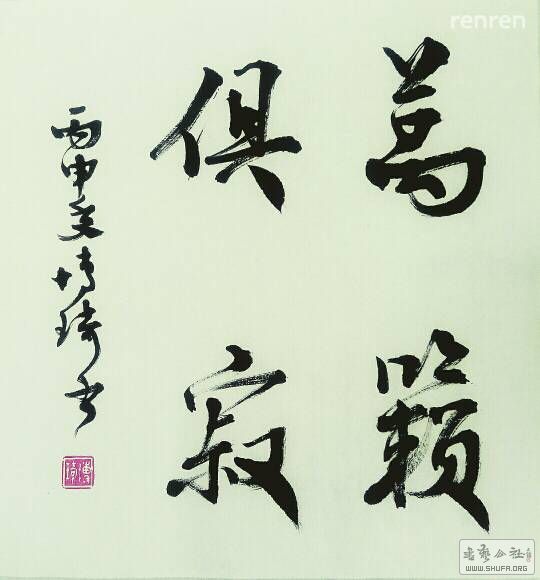 萬籟
俱寂
丙申 博琦书
博琦
renren
书艺公社
WWW.SHUFA.ORG